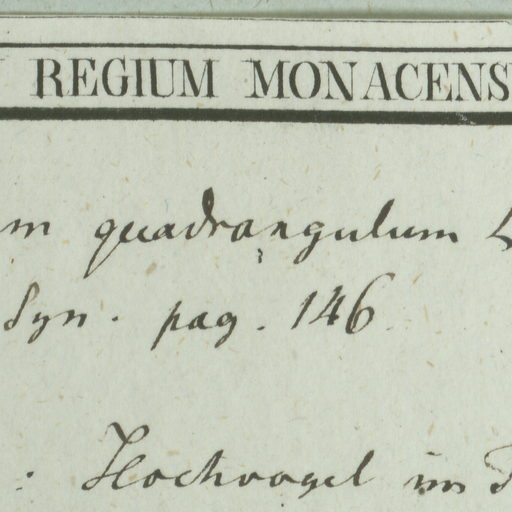 REGIUM MONACENS
m quadrangulum L
Syn. pag. 146
: Hochvogel im